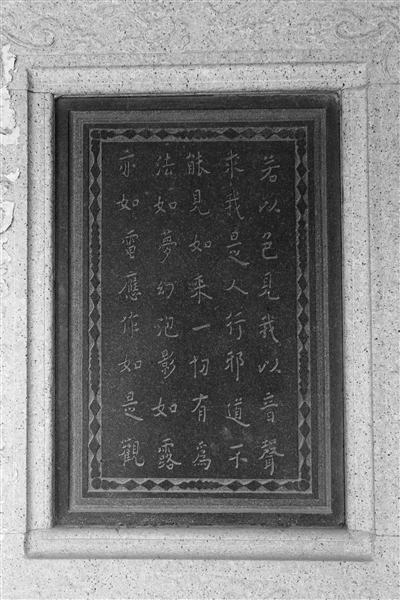 若以色見我以音聲
求我是人行邪道不
能見如來一切有爲
法如夢幻泡影如露
亦如電應作如是觀